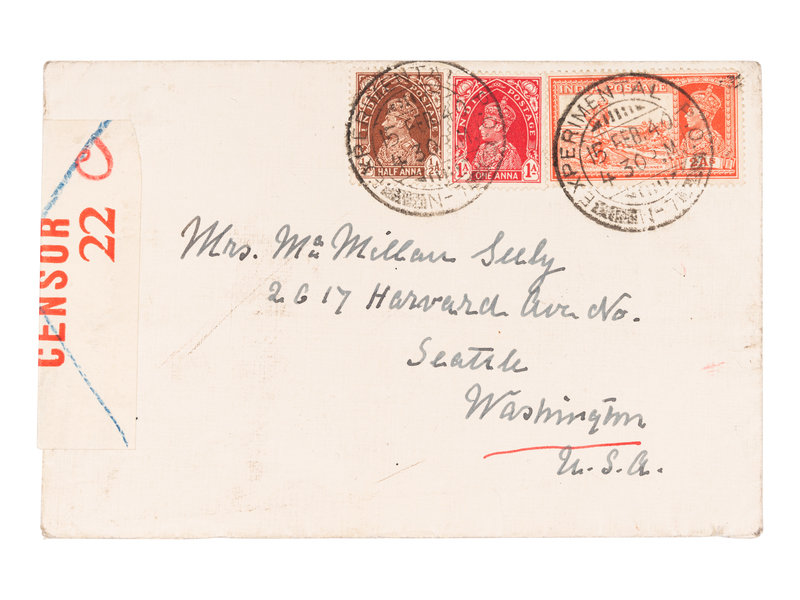 INDIA POSTAGE
HALF ANNA
INDIA POSTAGE
1A ONE ANNA 1A
INDIA POSTAGE
EXPERIMENTAL
15 FEB 40
4 30 PM
CENSOR
22
Mrs. MacMillan Seely
2617 Harvard Ave No.
Seattle
Washington
U.S.A.